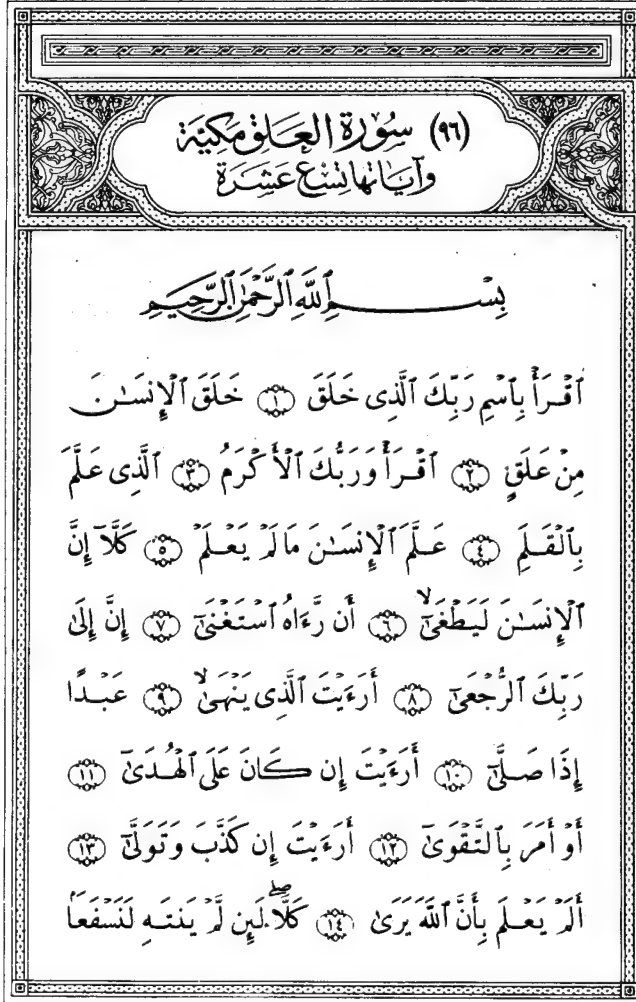 (٩٦) سُورَة العَلَق مَكيّة
وآياتها تسْع عَشَرَة
بِسْمِ ٱللَّهِ ٱلرَّحْمَٰنِ ٱلرَّحِيمِ
ٱقْرَأْ بِٱسْمِ رَبِّكَ ٱلَّذِى خَلَقَ ۝١ خَلَقَ ٱلْإِنسَٰنَ
مِنْ عَلَقٍ ۝٢ ٱقْرَأْ وَرَبُّكَ ٱلْأَكْرَمُ ۝٣ ٱلَّذِى عَلَّمَ
بِٱلْقَلَمِ ۝٤ عَلَّمَ ٱلْإِنسَٰنَ مَا لَمْ يَعْلَمْ ۝٥ كَلَّآ إِنَّ
ٱلْإِنسَٰنَ لَيَطْغَىٰٓ ۙ ۝٦ أَن رَّءَاهُ ٱسْتَغْنَىٰٓ ۝٧ إِنَّ إِلَىٰ
رَبِّكَ ٱلرُّجْعَىٰٓ ۝٨ أَرَءَيْتَ ٱلَّذِى يَنْهَىٰ ۙ ۝٩ عَبْدًا
إِذَا صَلَّىٰٓ ۝١٠ أَرَءَيْتَ إِن كَانَ عَلَى ٱلْهُدَىٰٓ ۝١١
أَوْ أَمَرَ بِٱلتَّقْوَىٰٓ ۝١٢ أَرَءَيْتَ إِن كَذَّبَ وَتَوَلَّىٰٓ ۝١٣
أَلَمْ يَعْلَم بِأَنَّ ٱللَّهَ يَرَىٰ ۝١٤ كَلَّا ۖ لَئِن لَّمْ يَنتَهِ لَنَسْفَعًۢا